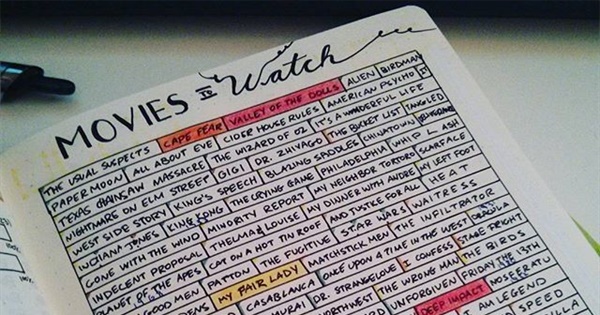 MOVIES to Watch
THE USUAL SUSPECTS CAPE FEAR VALLEY OF THE DOLLS ALIEN BIRDMAN
PAPER MOON ALL ABOUT EVE CIDER HOUSE RULES AMERICAN PSYCHO
TEXAS CHAINSAW MASSACRE THE WIZARD OF OZ IT'S A WONDERFUL LIFE
NIGHTMARE ON ELM STREET GIGI DR. ZHIVAGO THE BUCKET LIST TANGLED
WEST SIDE STORY KING'S SPEECH BLAZING SADDLES CHINATOWN
INDIANA JONES KING KONG THE CRYING GAME PHILADELPHIA WHIPLASH
GONE WITH THE WIND MINORITY REPORT MY NEIGHBOR TOTORO SCARFACE
INDECENT PROPOSAL THELMA & LOUISE MY DINNER WITH ANDRE MY LEFT FOOT
PLANET OF THE APES CAT ON A HOT TIN ROOF AND JUSTICE FOR ALL HEAT
GOOD MEN PATTON THE FUGITIVE STAR WARS WAITRESS
MY FAIR LADY MATCHSTICK MEN THE INFILTRATOR
CASABLANCA ONCE UPON A TIME IN THE WEST DRACULA
DR. STRANGELOVE I CONFESS STAGE FRIGHT
THE WRONG MAN THE BIRDS
UNFORGIVEN FRIDAY THE 13TH
DEEP IMPACT NOSFERATU
I AM LEGEND
SPEED